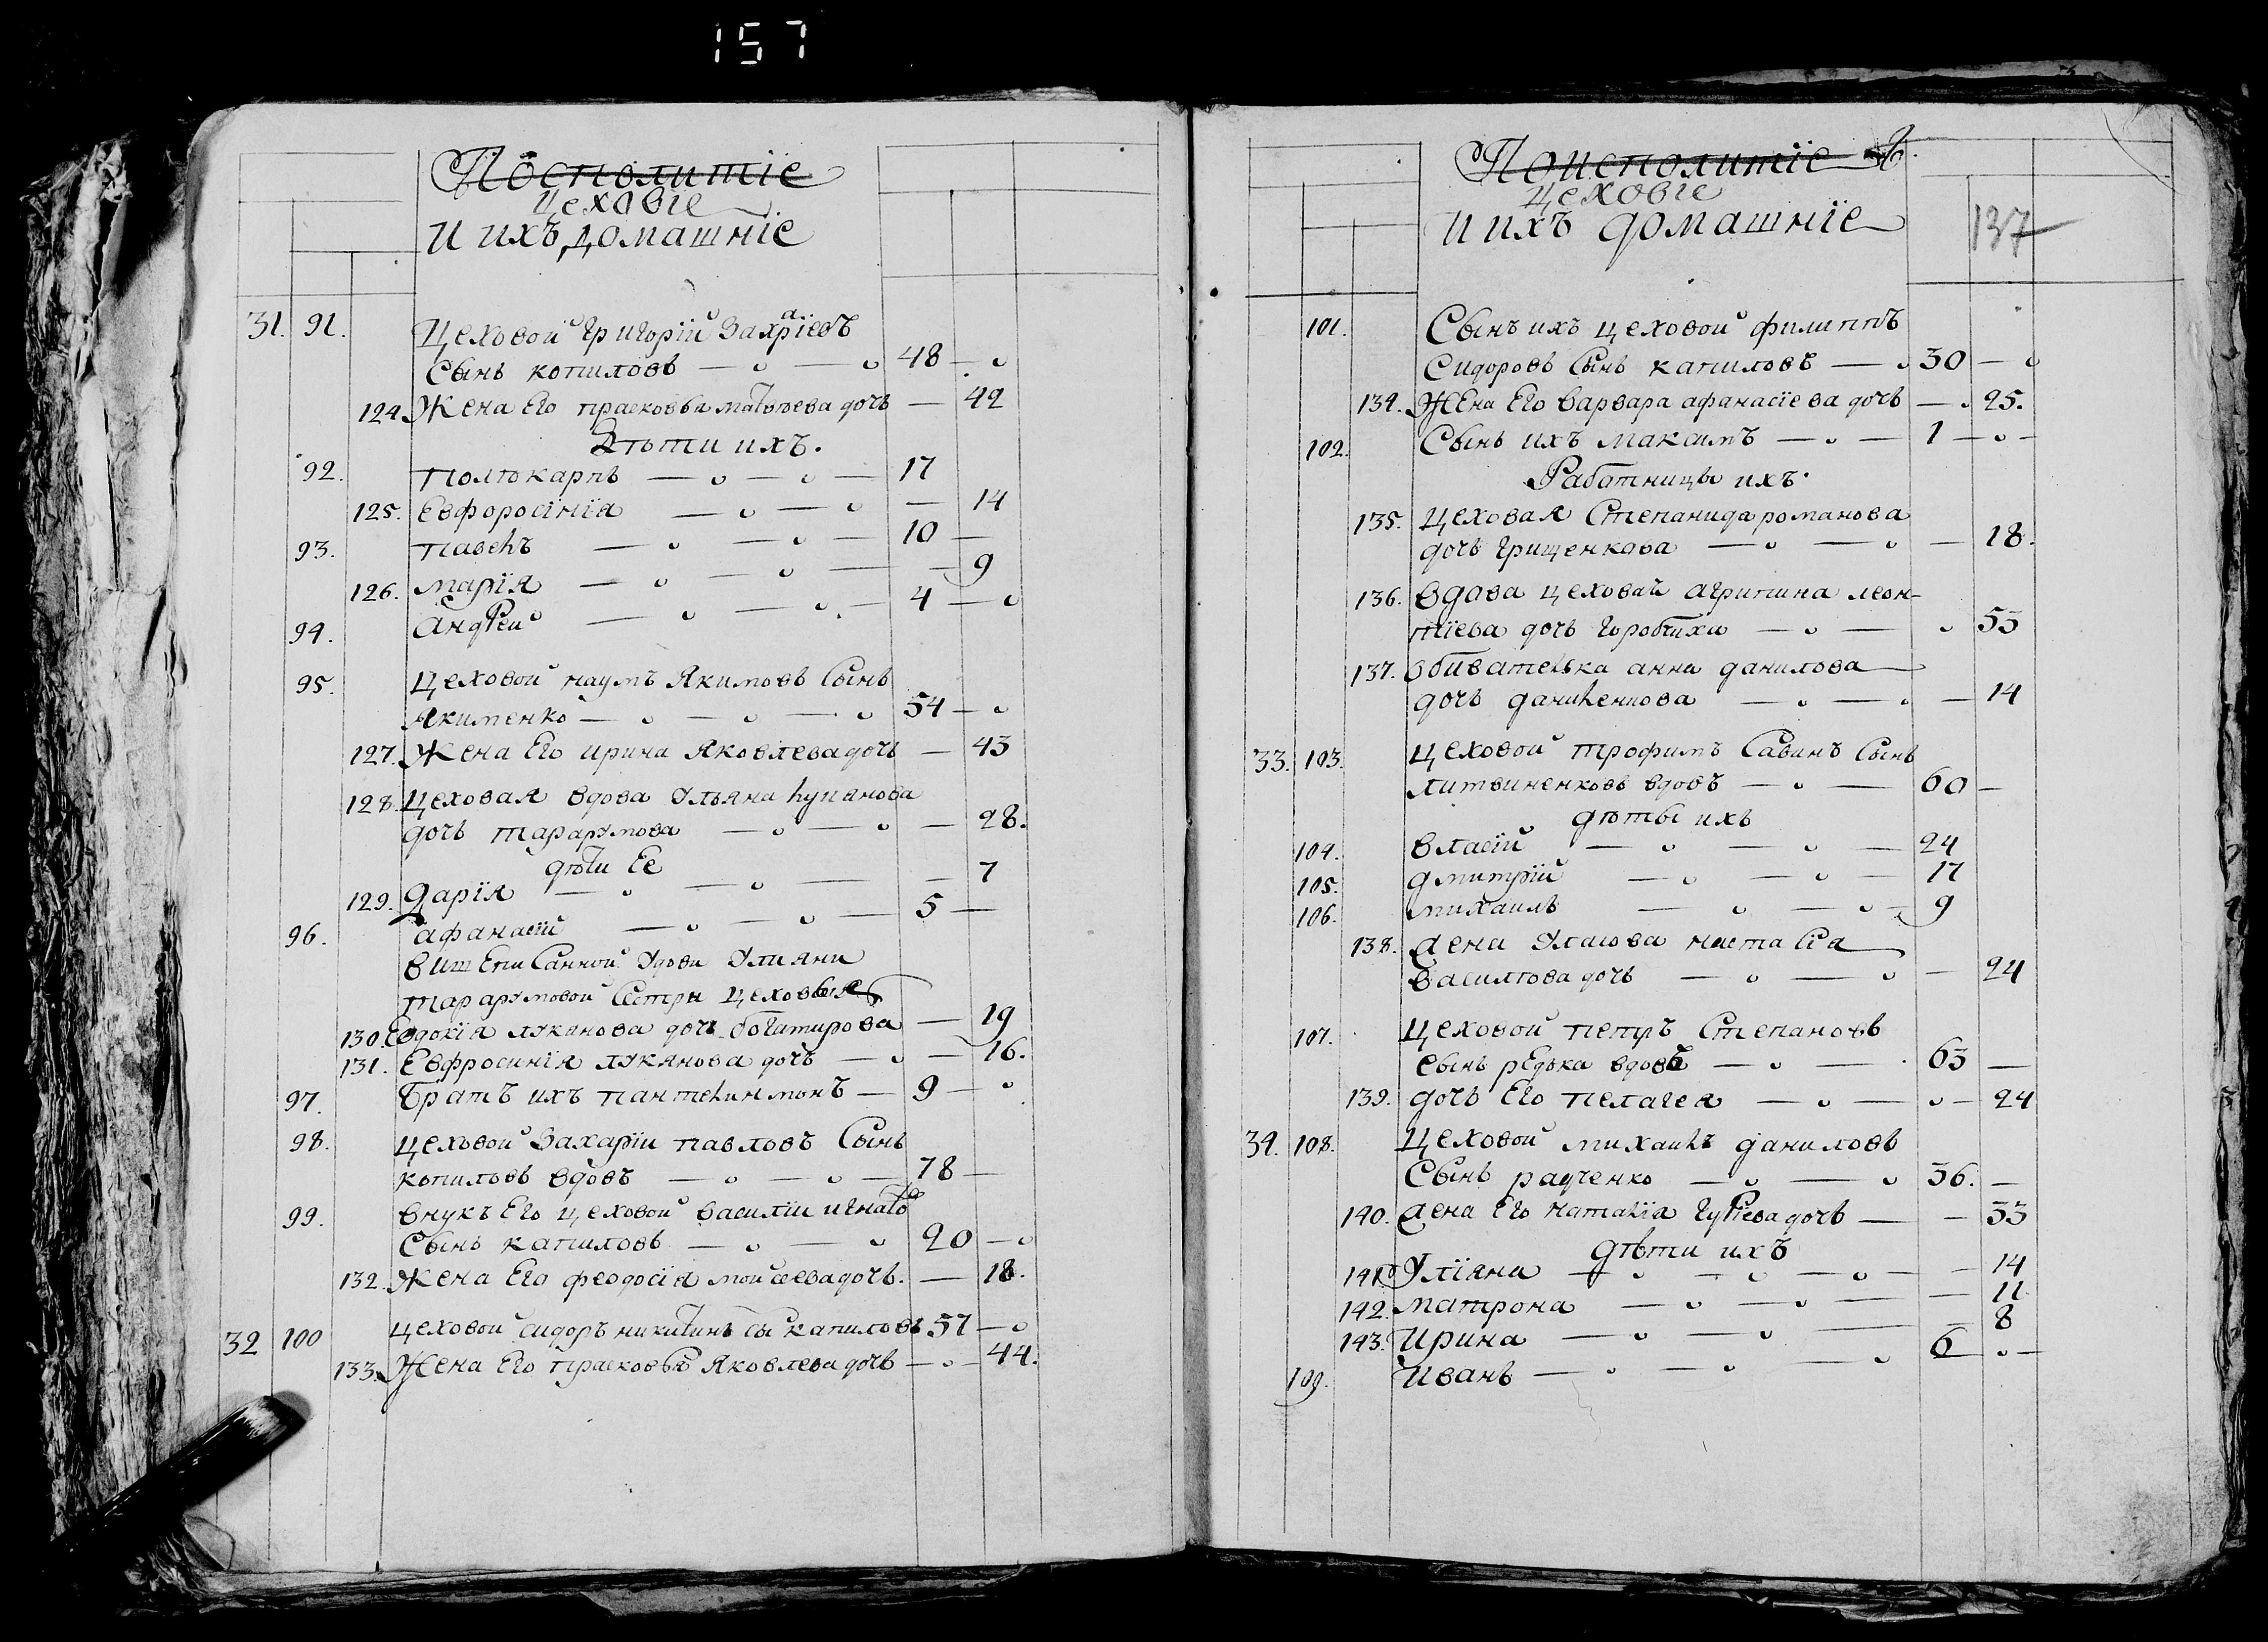 157
Посполитїе
цеховїе
и ихъ домашнїе
31. 91. Цеховой григорїй Захарїевъ
Сынъ копиловъ 48
124. Жена Его прасковья матвѣева дочь 42
Дѣти ихъ.
92. полѣкарпъ 17
125. Евфоросїнїя 14
93. павелъ 10
126. марїя 9
94. андрей 4
95. Цеховой наумъ Якимовъ Сынъ
Якименко 54
127. Жена Его ирина Яковлева дочь 43
128. Цеховая вдова Ульяна лукянова
дочь тарарумова 28.
дѣти Ее
129. Дарїя 7
96. афанасїй 5
вишЕписанной Удови Улияни
тараруmовой Сестри Цеховые
130. Евдокїя лукянова дочь богатирова 19
131. Евфросинїя лукянова дочь 16.
97. Братъ ихъ пантелиимонъ 9
98. цеховой Захарїи павловъ Сынъ
копиловъ вдовъ 78
99. внукъ Его цеховой василїи игнатов
Сынъ капиловъ 20
132. Жена Его феодосїя мойсеева дочь. 18.
32 100 цеховой сидоръ никитинъ сы капиловъ 57
133. Жена Его прасковья Яковлева дочь 44.
Поисполитїе
цеховїе
и ихъ домашнїе
137
101. Сынъ ихъ цеховой филиппъ
Сидоровъ Сынъ капиловъ 30
134. Жена Его варвара афанасїева дочь 25.
102. Сынъ ихъ максимъ 1
Работницы ихъ.
135. цеховая Степанида романова
дочь грищенкова 18.
136. вдова цеховая агрипина леон-
тїева дочь горобчиха 53
137. обивателька анна данилова
дочь даниленкова 14
33. 103. цеховой трофимъ Савинъ Сынъ
литвиненковъ вдовъ 60
дѣты ихъ
104. власїй 24
105. дмитрїй 17
106. михаилъ 9
138. жена Уласова настасїа
василѣова дочь 24
107. цеховой петръ Степановъ
сынъ рЕдька вдовъ 63
139. дочь Его пелагея 24
34. 108. цеховой михаилъ даниловъ
Сынъ радченко 36.
140. жена Его наталїя гурїева дочь 33
Дѣти ихъ
141. Улїяна 14
142. матрона 11
143. ирина 8
109. иванъ 6